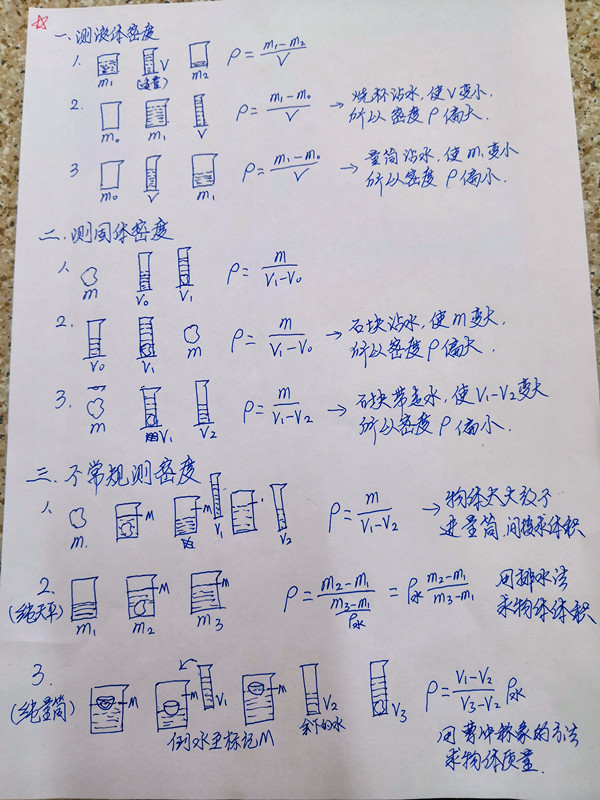 一、测液体密度
1. m₁ V (适量) m₂ ρ = (m₁-m₂)/V
2. m₀ m₁ V ρ = (m₁-m₀)/V → 烧杯沾水,使V变小.
所以密度ρ偏大.
3 m₀ V m₁ ρ = (m₁-m₀)/V → 量筒沾水,使m₁变小
所以密度ρ偏小.
二.测固体密度
1. m V₀ V₁ ρ = m/(V₁-V₀)
2. V₀ V₁ m ρ = m/(V₁-V₀) → 石块沾水,使m变大.
所以密度ρ偏大.
3. m V₁ V₂ ρ = m/(V₁-V₂) → 石块带走水,使V₁-V₂变大
所以密度ρ偏小.
三.不常规测密度
1. m. M M V₁ V₂ ρ = m/(V₁-V₂) → 物体太大放不
进量筒,间接求体积
2. (纯天平) m₁ m₂ M m₃ M ρ = (m₂-m₁)/((m₃-m₁)/ρ水) = ρ水 (m₂-m₁)/(m₃-m₁) 用排水法
求物体体积
3. (纯量筒) M M V₁ M V₂ V₃ ρ = (V₁-V₂)/(V₃-V₂) ρ水
倒水至标记M 余下的水
用曹冲称象的方法
求物体质量.